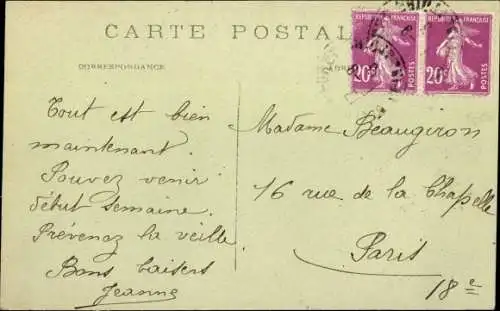 CARTE POSTALE
CORRESPONDANCE
REPUBLIQUE FRANÇAISE
20c
POSTES
REPUBLIQUE FRANÇAISE
20c
POSTES
Tout est bien
maintenant.
Pouvez venir
début semaine.
Prévenez la veille
Bons baisers
Jeanne
Madame Beaugiron
16 rue de la Chapelle
Paris
18e